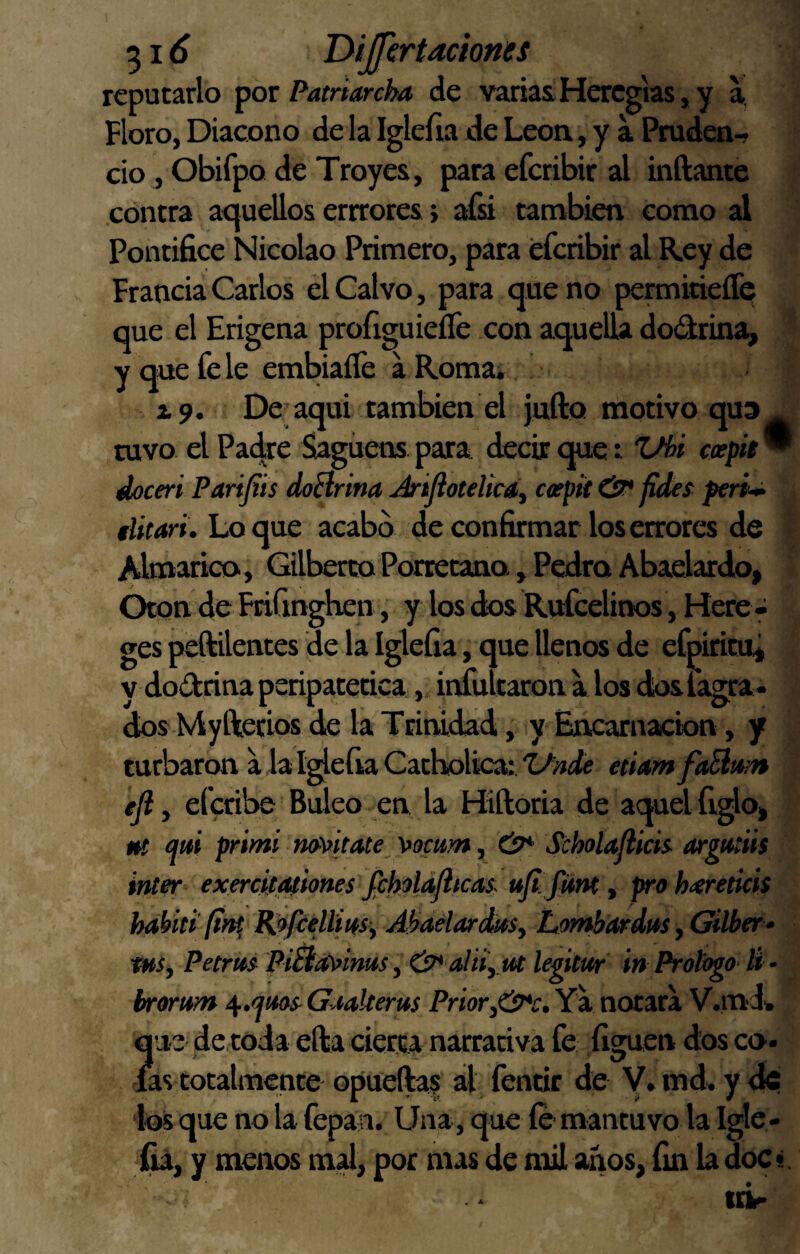 316 Dissertaciones
reputarlo por Patriarcha de varias Heregìas, y à
Floro, Diacono de la Iglesia de Leon, y à Pruden-
cio , Obispo de Troyes, para escribir al instante
contra aquellos errrores; assi tambien como al
Pontifice Nicolao Primero, para escribir al Rey de
Francia Carlos el Calvo, para que no permitiesse
que el Erigena prosiguiesse con aquella doctrina,
y que se le embiasse à Roma.
29. De aqui tambien el justo motivo quɔ
tuvo el Padre Saguens para decir que: Ubi cœpit
doceri Parisiis doctrina Aristotelica, cœpit & fides peri-
clitari. Lo que acabò de confirmar los errores de
Almarico, Gilberto Porretano, Pedro Abaelardo,
Oton de Frisinghen, y los dos Ruscelinos, Here-
ges pestilentes de la Iglesia, que llenos de espiritu,
y doctrina peripatetica, insultaron à los dos sagra-
dos Mysterios de la Trinidad, y Encarnacion, y
turbaron à la Iglesia Catholica: Unde etiam factum
est, escribe Buleo en la Historia de aquel siglo,
ut qui primi novitate vocum, & Scholasticis argutiis
inter exercitationes scholasticas usi sunt, pro hæreticis
habiti sint Roscellius, Abaelardus, Lombardus, Gilber-
tus, Petrus Pictavinus, & alii, ut legitur in Prologo li-
brorum 4. quos Gualterus Prior, &c. Ya notarà V.md.
que de toda esta cierta narrativa se siguen dos co-
sas totalmente opuestas al sentir de V. md. y de
los que no la sepan. Una, que se mantuvo la Igle-
sia, y menos mal, por mas de mil años, sin la doc-
tri-